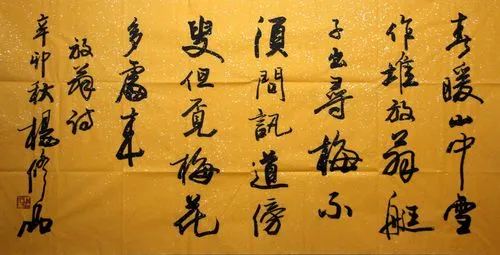 春暖山中雪
作堆放翁艇
子出尋梅不
須問訊道傍
叟但覓梅花
多處來
放翁诗
辛卯秋楊修品